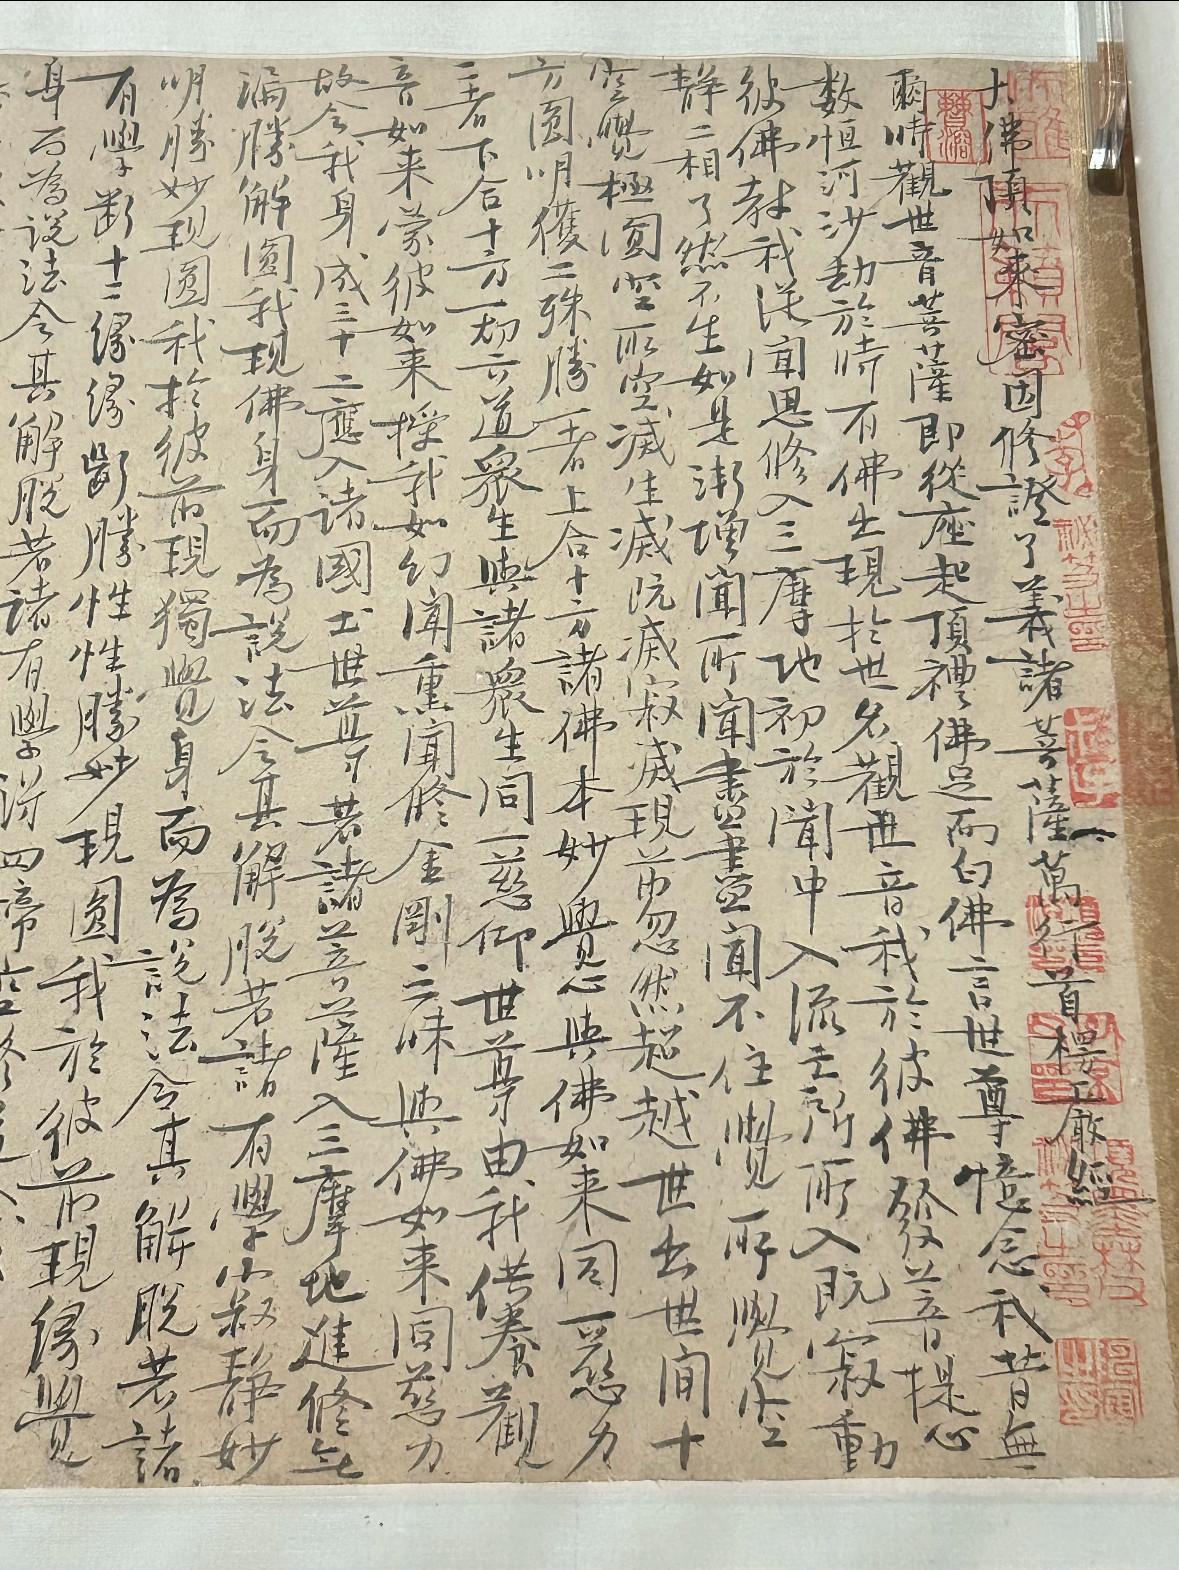 大佛頂如來密因修證了義諸菩薩萬行首楞嚴經
爾時觀世音菩薩即從座起頂禮佛足而白佛言世尊憶念我昔無
數恒河沙劫於時有佛出現於世名觀世音我於彼佛發菩提心
彼佛教我從聞思修入三摩地初於聞中入流亡所所入既寂動
靜二相了然不生如是漸增聞所聞盡盡聞不住覺所覺空
空覺極圓空所空滅生滅既滅寂滅現前忽然超越世出世間十
方圓明獲二殊勝一者上合十方諸佛本妙覺心與佛如来同一慈力
二者下合十方一切六道衆生與諸衆生同一慈仰世尊由我供養觀
音如来蒙彼如来授我如幻聞熏聞修金剛三昧與佛如来同慈力
故令我身成三十二應入諸國土世尊若諸菩薩入三摩地進修無
漏勝解圓我現佛身而為說法令其解脫若諸有學寂靜妙
明勝妙現圓我於彼前現獨覺身而為說法令其解脫若諸
有學斷十二緣緣斷勝性性勝妙現圓我於彼前現緣覺
身而為說法令其解脫若諸有學得四帝
曹溶